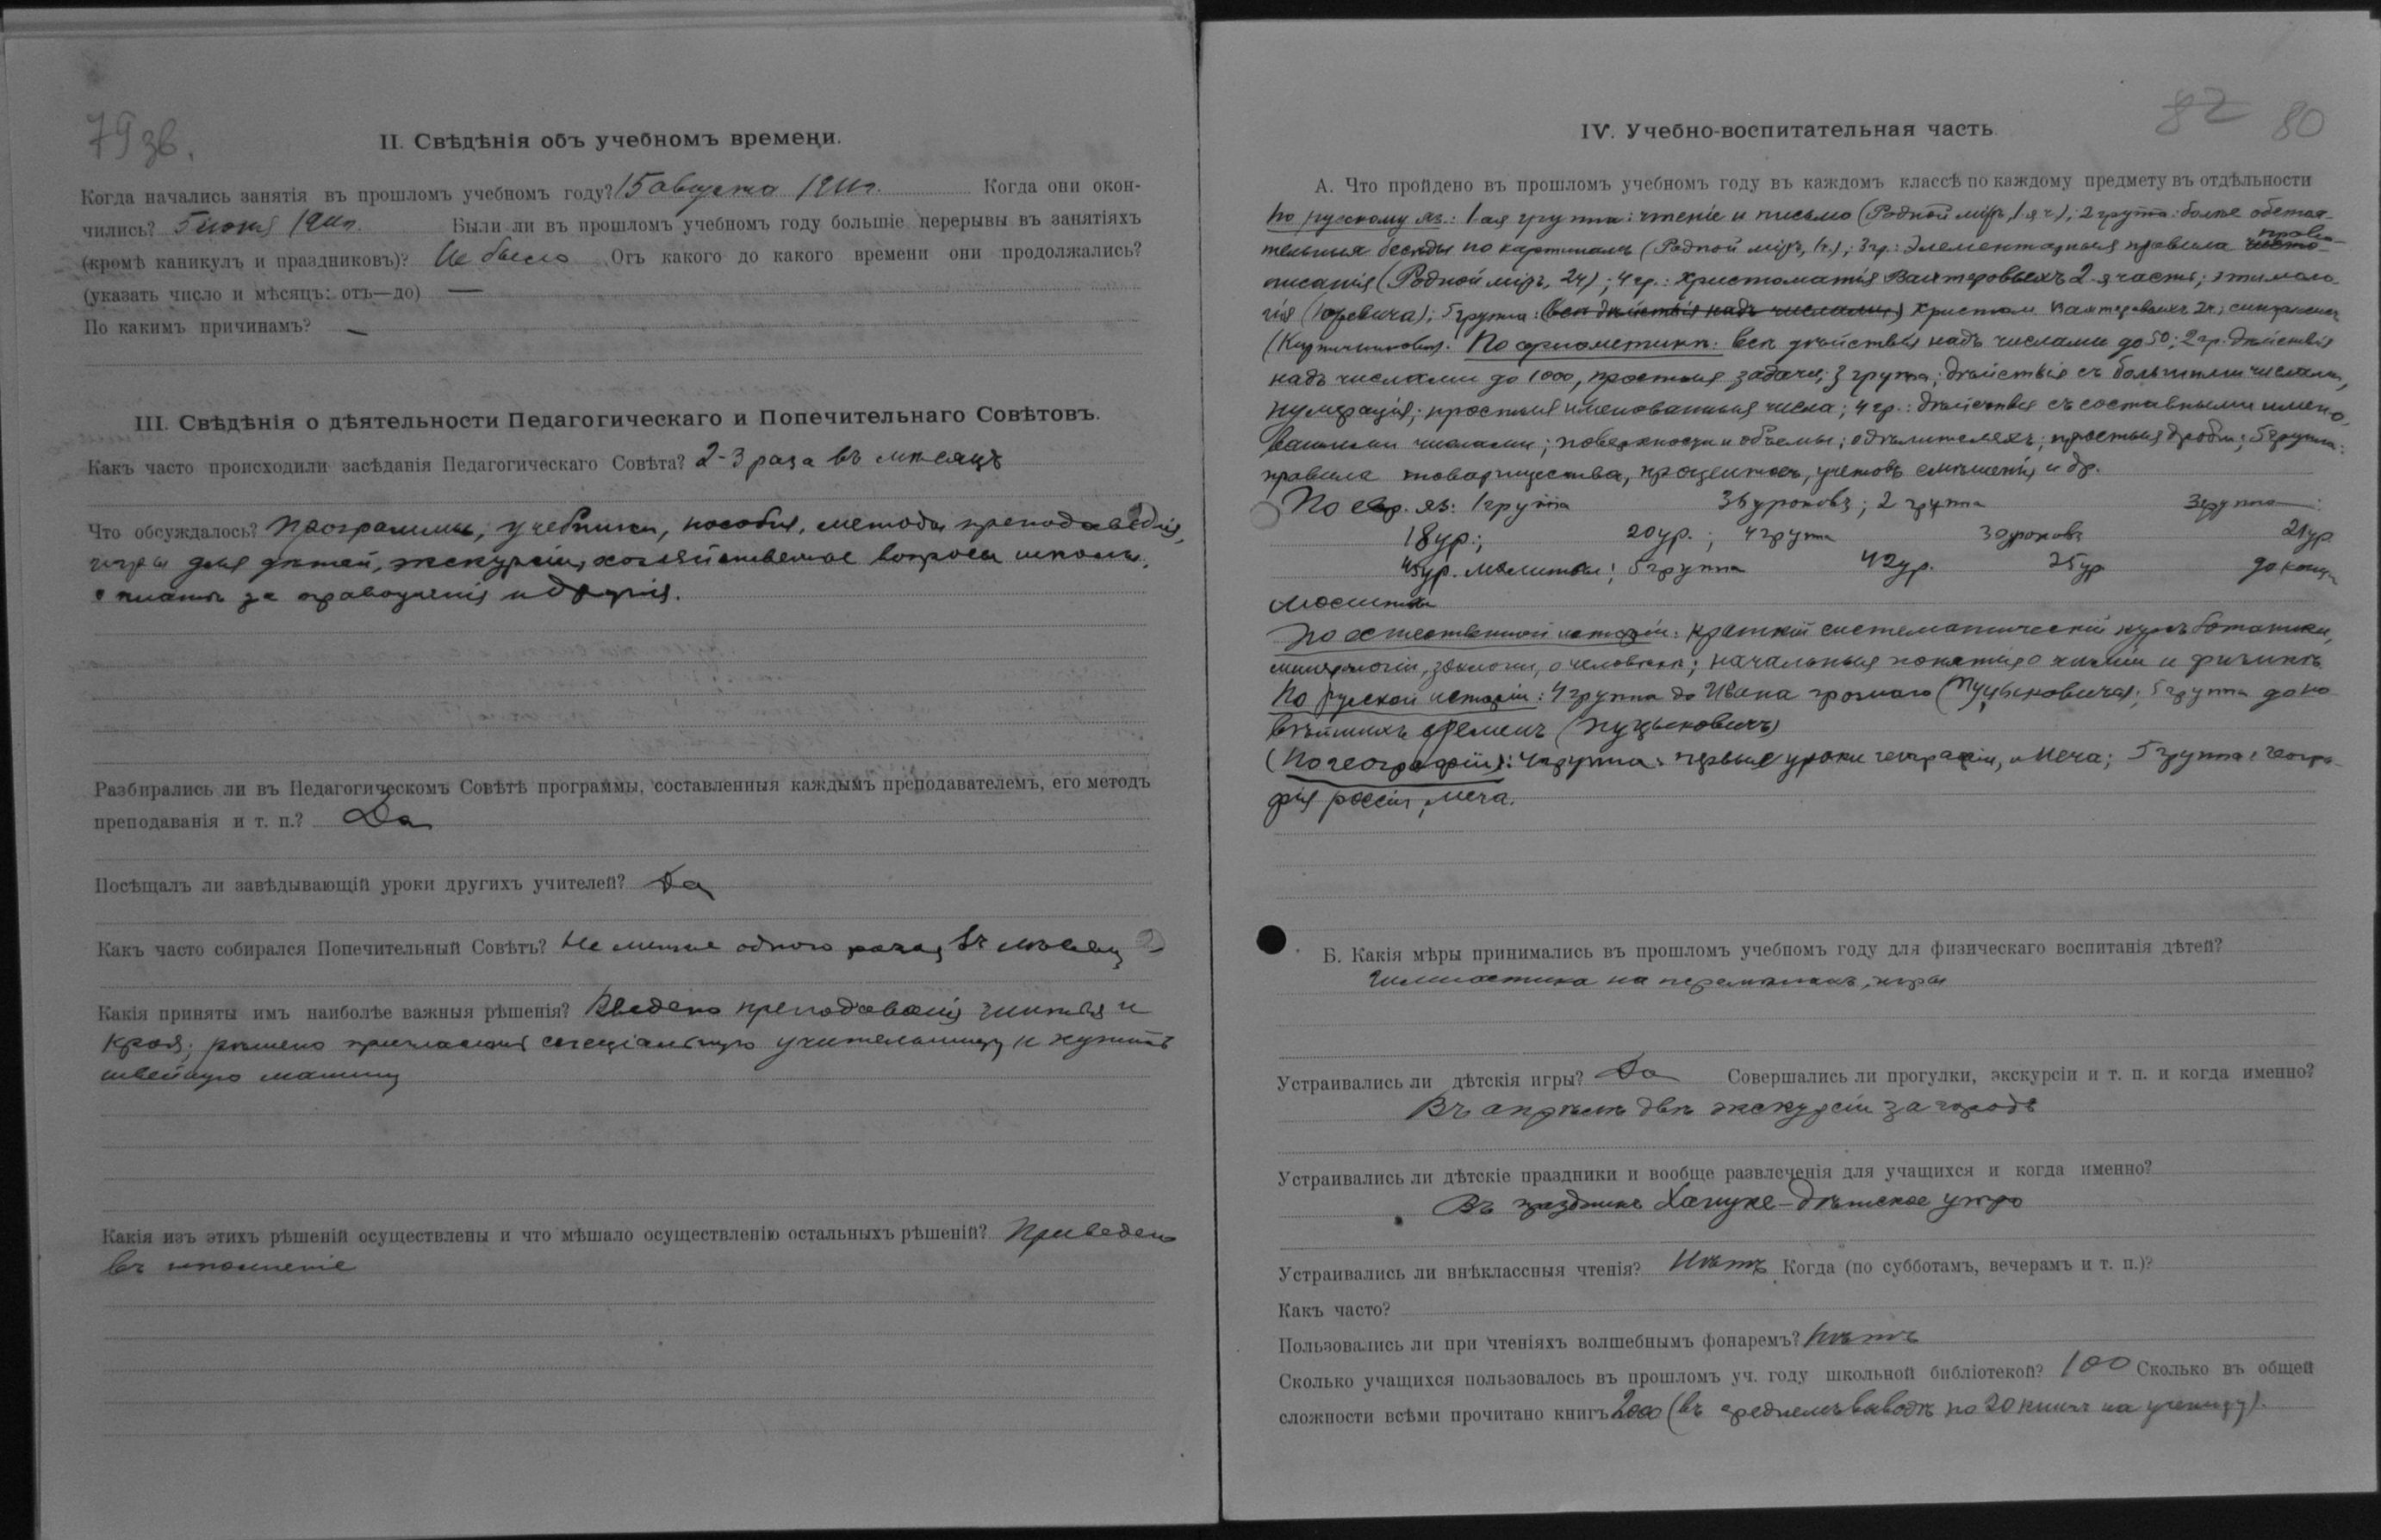 79 об.
II. Свѣдѣнія объ учебномъ времени.
Когда начались занятія въ прошломъ учебномъ году? 15 августа 1911 г. Когда они окон-
чились? 5 іюня Были ли въ прошломъ учебномъ году большіе перерывы въ занятіяхъ
(кромѣ каникулъ и праздниковъ)? Не было Отъ какого до какого времени они продолжались?
(указать число и мѣсяцъ: отъ—до) —
По какимъ причинамъ? —
III. Свѣдѣнія о дѣятельности Педагогическаго и Попечительнаго Совѣтовъ.
Какъ часто происходили засѣданія Педагогическаго Совѣта? 2-3 раза въ мѣсяцъ
Что обсуждалось? Программы, учебники, пособія, методы преподаванія,
игры для дѣтей, экскурсіи, хозяйственные вопросы школы,
о платѣ за правоученія и другія.
Разбирались ли въ Педагогическомъ Совѣтѣ программы, составленныя каждымъ преподавателемъ, его методъ
преподаванія и т. п.? Да
Посѣщалъ ли завѣдывающій уроки другихъ учителей? Да
Какъ часто собирался Попечительный Совѣтъ? Не менѣе одного раза въ мѣсяц
Какія приняты имъ наиболѣе важныя рѣшенія? Введено преподаваніе шитья и
кроя; рѣшено пригласить спеціальную учительницу и купить
швейную машину
Какія изъ этихъ рѣшеній осуществлены и что мѣшало осуществленію остальныхъ рѣшеній? Приведены
въ исполненіе
82 80
IV. Учебно-воспитательная часть
А. Что пройдено въ прошломъ учебномъ году въ каждомъ классѣ по каждому предмету въ отдѣльности
По русскому яз.: 1-ая группа: чтеніе и письмо (Родной міръ, 1 я ч.); 2 группа: болѣе обстоя-
тельныя бесѣды по картинамъ (Родной міръ, 1ч.); 3 гр.: Элементарныя правила право-
писанія (Родной міръ, 2ч); 4 гр.: Христоматія Вахтеровыхъ 2-я часть; этимоло-
гія (Юревича); 5 группа: (всѣ дѣйствія надъ числами) Христом. Вахтеровыхъ 2ч; синтаксисъ
(Кирпичникова). По ариѳметикѣ: всѣ дѣйствія надъ числами до 50; 2 гр. дѣйствія
надъ числами до 1000, простыя задачи; 3 группа: дѣйствія съ большими числами,
нумерація; простыя именованныя числа; 4 гр.: дѣйствія съ составными имено-
ванными числами; поверхности и объемы; о дѣлителяхъ; простыя дроби; 5 группа:
правила товарищества, процентовъ, учетовъ смѣшенія и др.
По евр. яз: 1 группа 36 уроковъ; 2 группа 3 группа:
18 ур.; 20 ур.; 4 группа 30 уроковъ 21 ур.
45 ур. молитвы; 5 группа 42 ур. 25 ур до конца
молитвы
По естественной исторіи: краткій систематическій курсъ ботаники,
минералогіи, зоологіи, о человѣкѣ; начальныя понятія о химіи и физикѣ
По русской исторіи: 4 группа до Ивана грознаго (Пуцыковича); 5 группа до но
вѣйшихъ временъ (Пуцыковичъ)
(По географіи): 4 группа: первые уроки географіи, Меча; 5 группа: геогра-
фія россіи, Меча.
Б. Какія мѣры принимались въ прошломъ учебномъ году для физическаго воспитанія дѣтей?
Гимнастика на перемѣнахъ, игры
Устраивались ли дѣтскія игры? Да Совершались ли прогулки, экскурсіи и т. п. и когда именно?
Въ апрѣлѣ двѣ экскурсіи за городъ
Устраивались ли дѣтскіе праздники и вообще развлеченія для учащихся и когда именно?
Въ праздникъ Хануке - дѣтское утро
Устраивались ли внѣклассныя чтенія? Нѣтъ Когда (по субботамъ, вечерамъ и т. п.)?
Какъ часто?
Пользовались ли при чтеніяхъ волшебнымъ фонаремъ? Нѣтъ
Сколько учащихся пользовалось въ прошломъ уч. году школьной библіотекой? 100 Сколько въ общей
сложности всѣми прочитано книгъ 2000 (въ среднемъ выводѣ по 20 книгъ на ученицу).